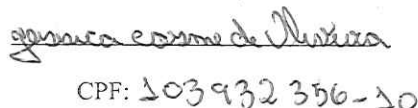 jessica cosmo de Oliveira
CPF: 103932356-10